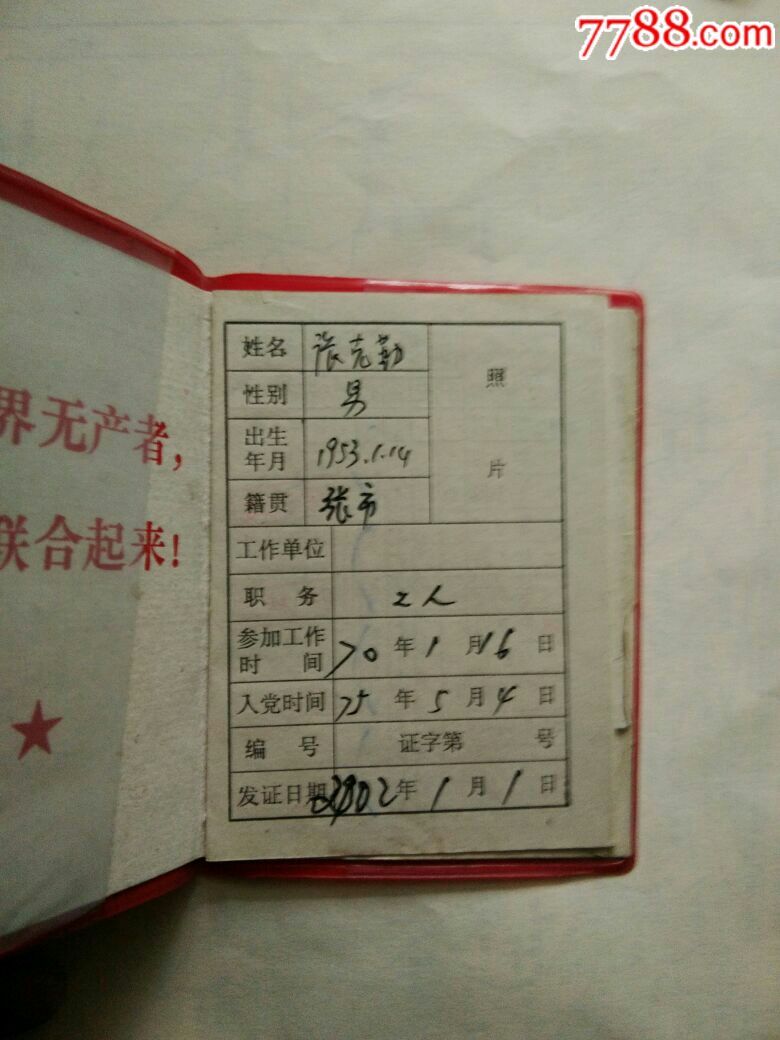 7788.com
界无产者，
联合起来！
姓名 张克勤
照
性别 男
出生
年月 1953.1.14
片
籍贯 张市
工作单位
职务 工人
参加工作
时间 70年1月16日
入党时间 75年5月4日
编号 证字第 号
发证日期 2002年1月1日